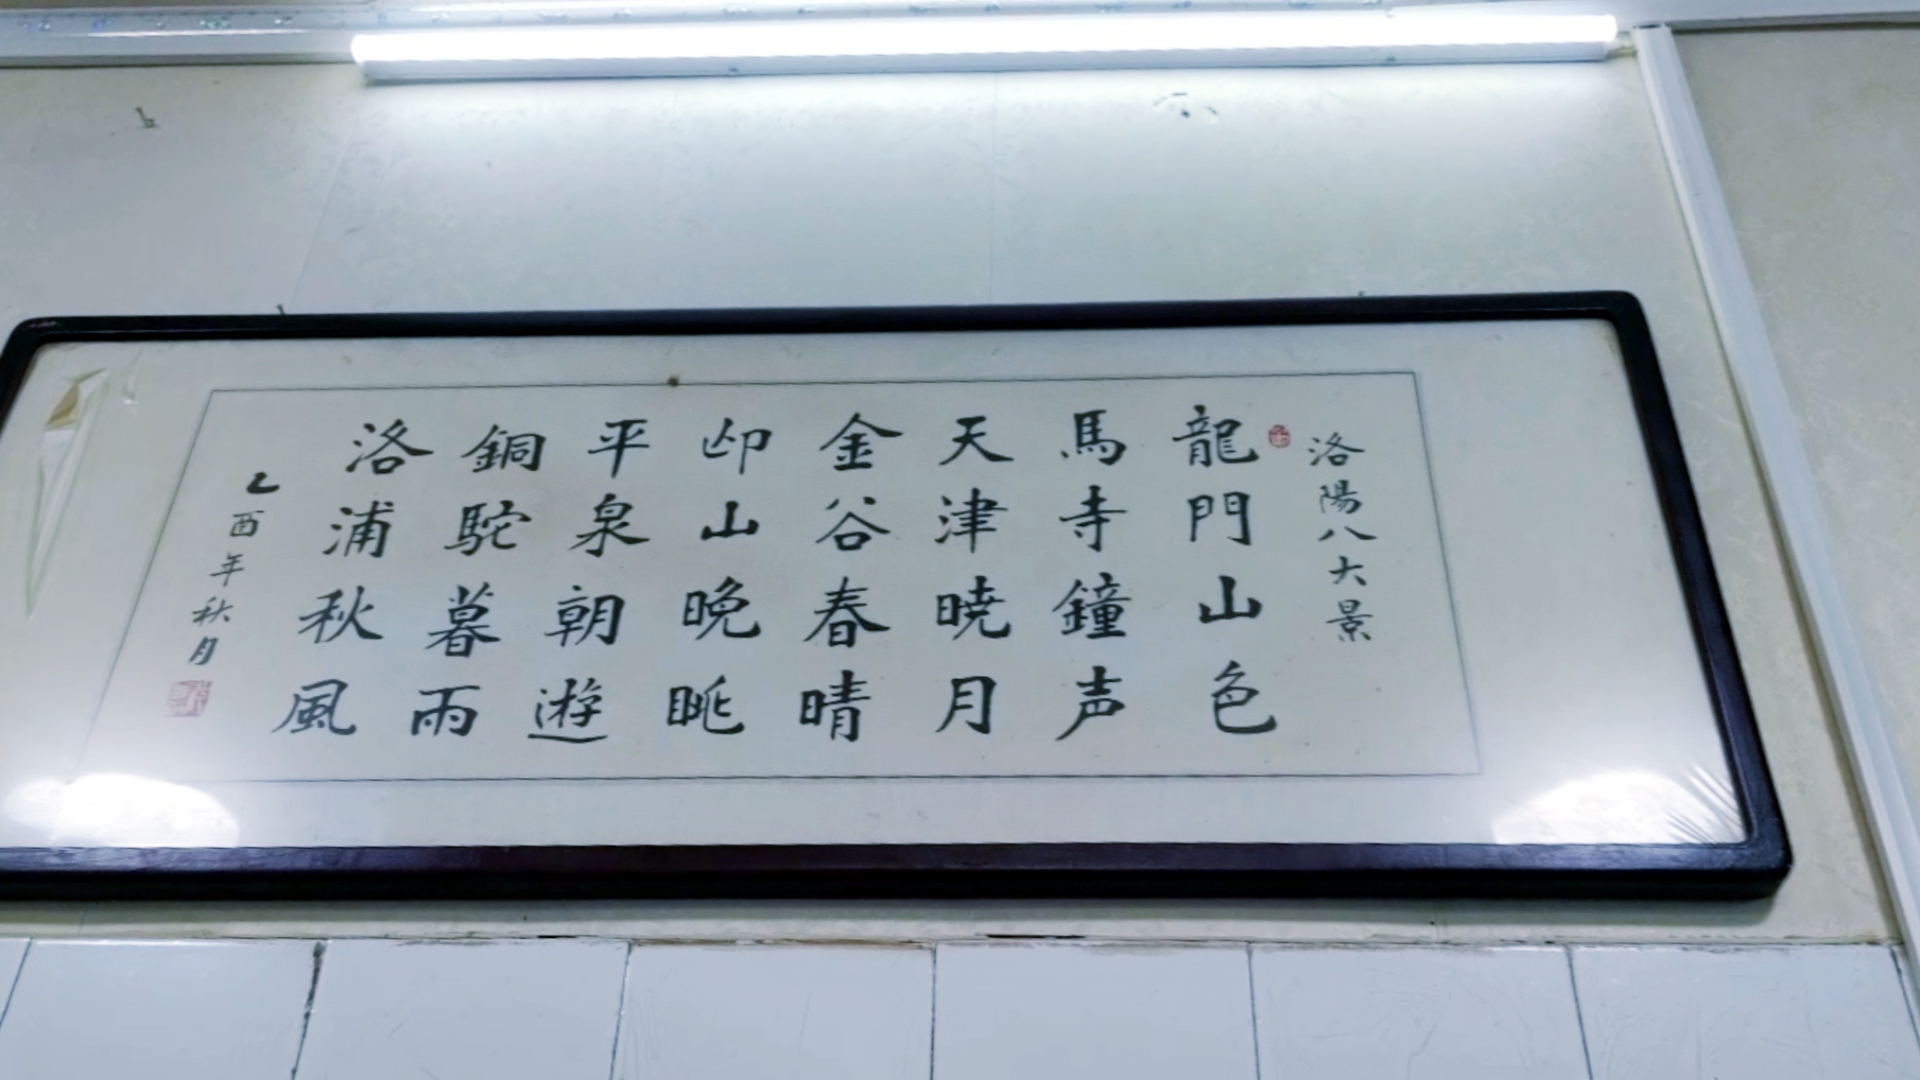 洛陽八大景
龍門山色
馬寺鐘声
天津暁月
金谷春晴
邙山晚眺
平泉朝遊
銅駝暮雨
洛浦秋風
乙酉年秋月